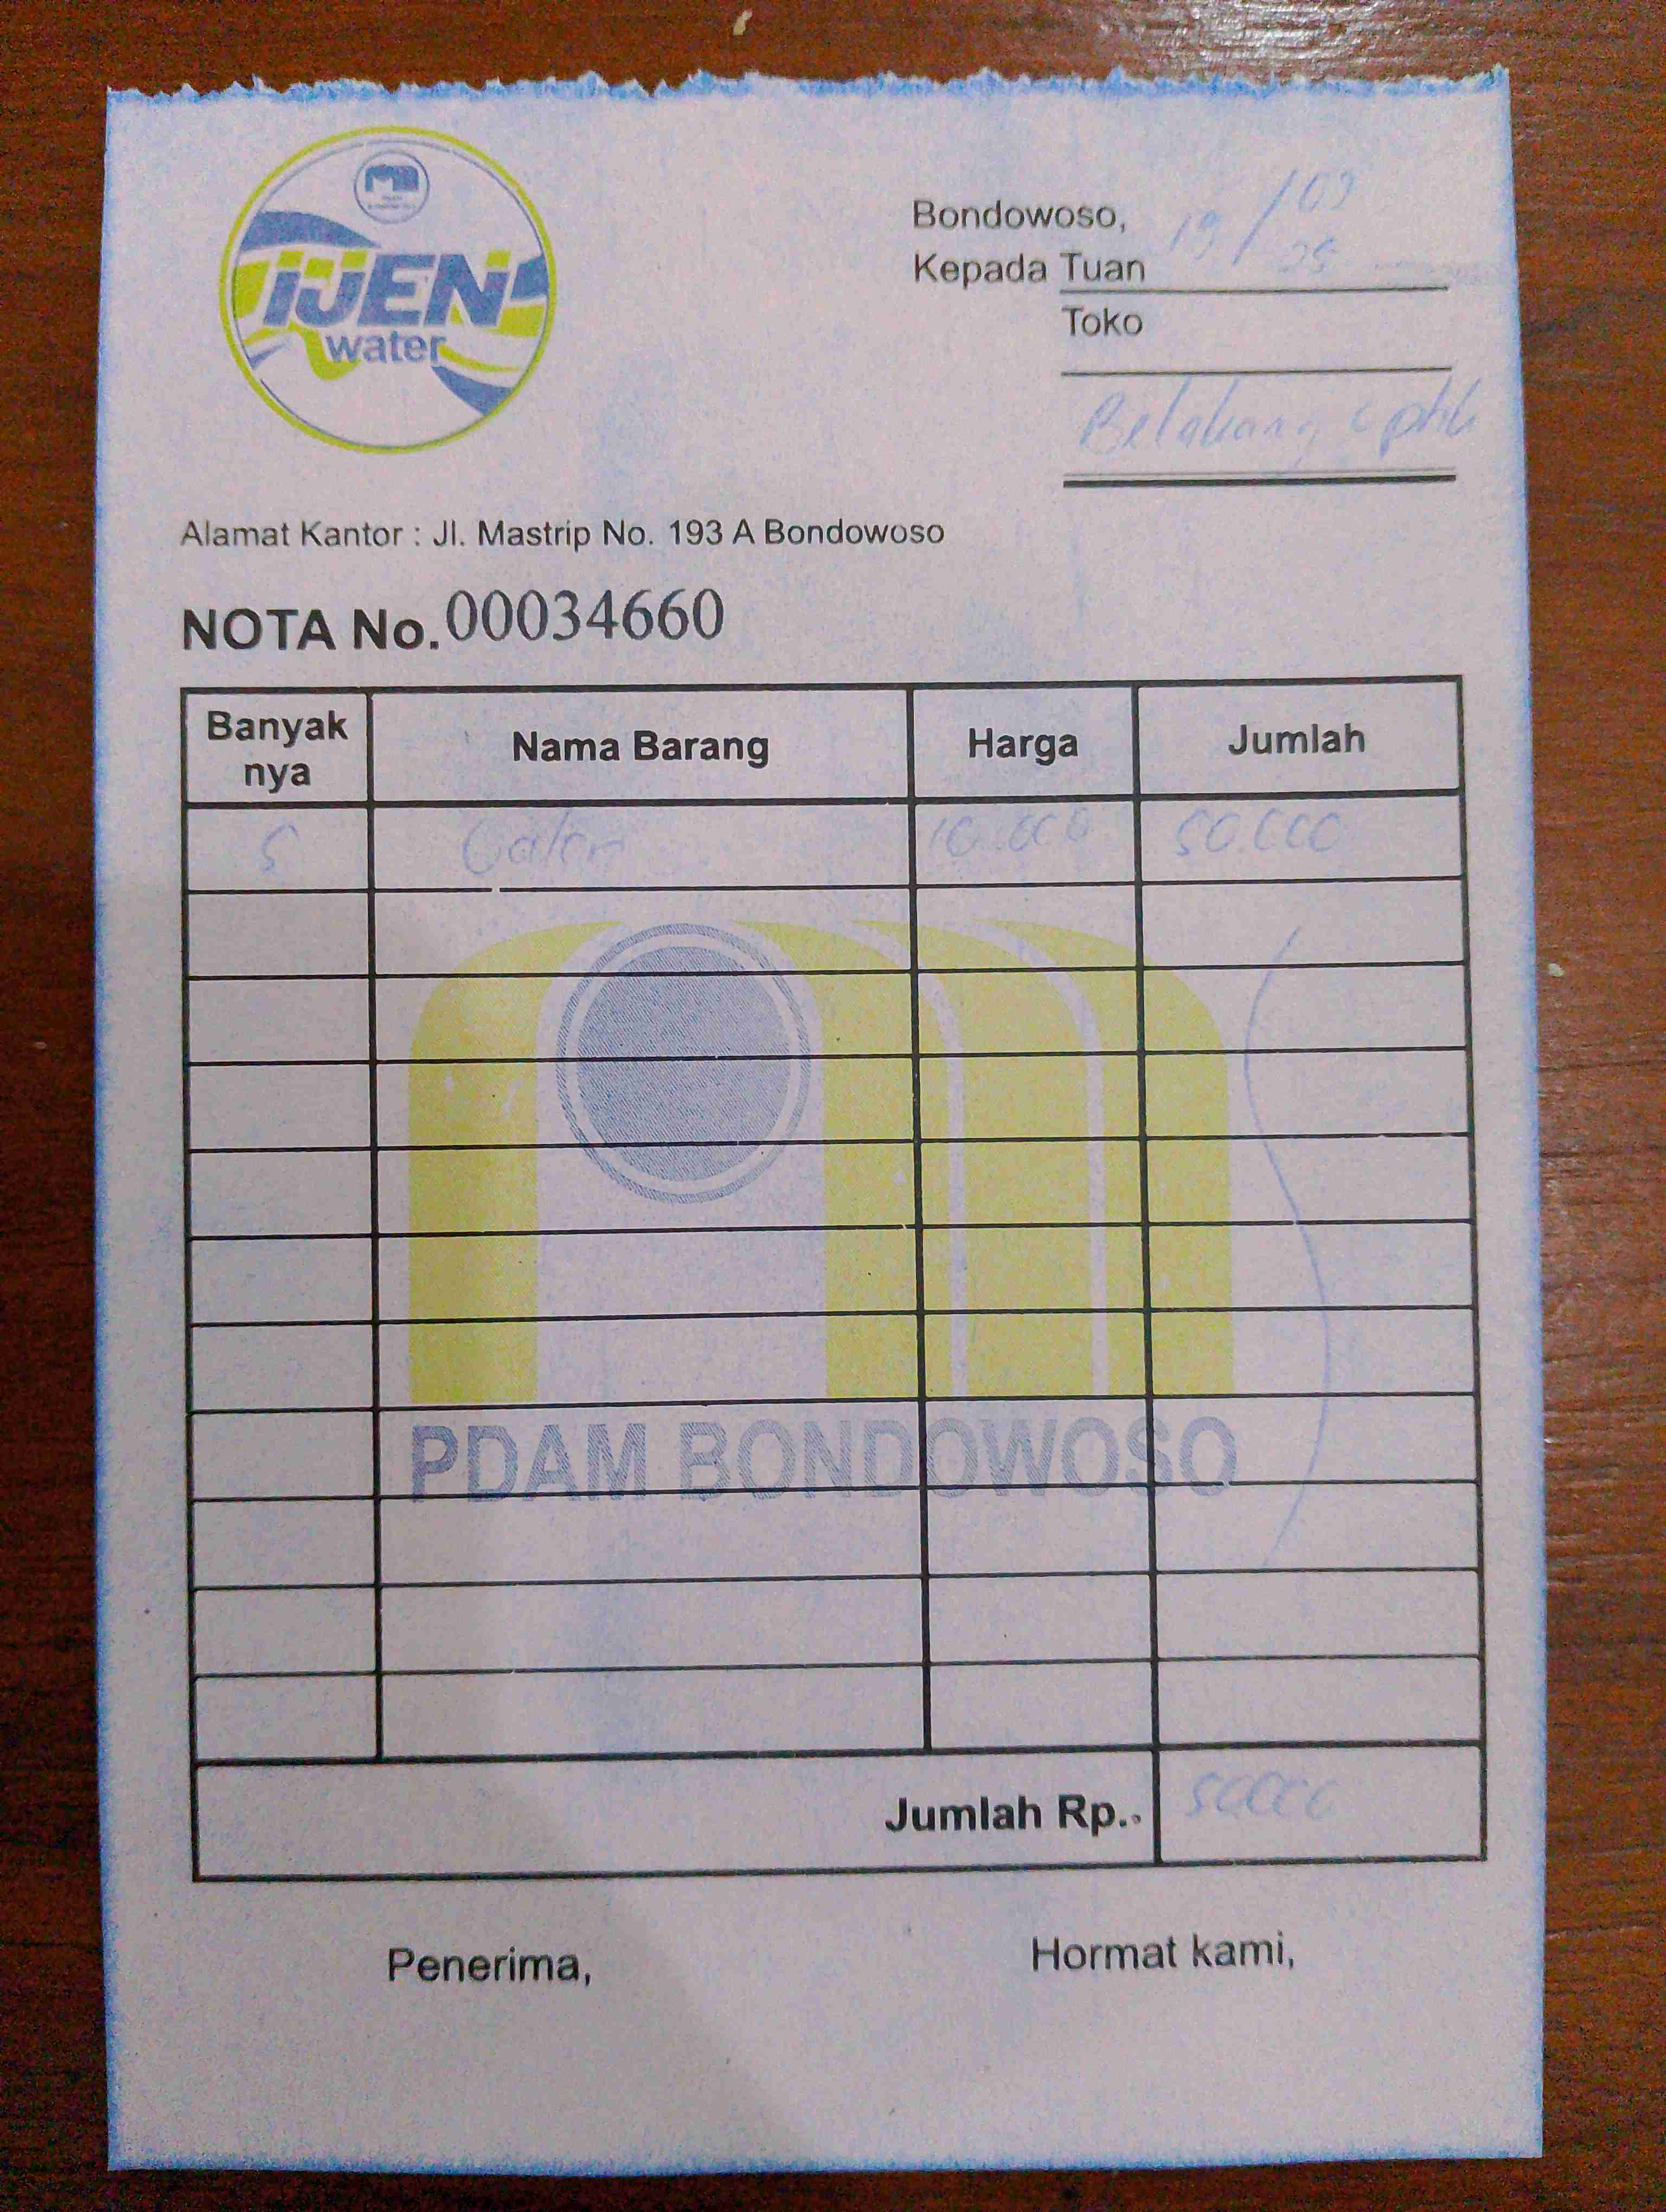 IJEN
water
Bondowoso, 19/09
25
Kepada Tuan
Toko
Belakang
Alamat Kantor : Jl. Mastrip No. 193 A Bondowoso
NOTA No. 00034660
Banyak nya Nama Barang Harga Jumlah
5 Galon 10.000 50.000
PDAM BONDOWOSO
Jumlah Rp.. 50000
Penerima, Hormat kami,